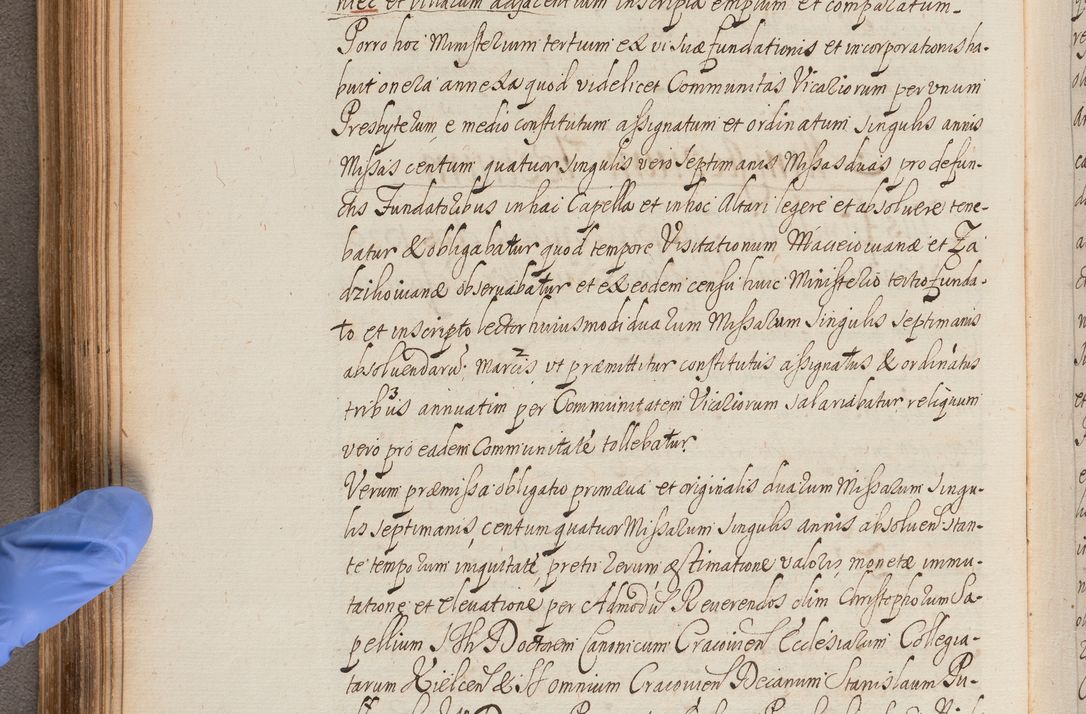 niec et villarum adjacentium inscripta emptum et comparatum.
Porro hoc Ministerium tertium ex vi suæ fundationis et incorporationis ha-
buit onera annexa quod videlicet Communitas Vicariorum per vnum
Presbyterum e medio constitutum assignatum et ordinatum singulis annis
Missas centum quatuor singulis vero septimanis Missas duas pro defun-
ctis Fundatoribus in hac Capella et in hoc Altari legere et absoluere tene-
batur & obligabatur quod tempore Visitationum Macieiouianæ et Za
dzikouianæ obseruabatur et ex eodem censu huic Ministerio tertio funda-
to et inscripto lector huiusmodi duarum Missarum singulis septimanis
absoluendaru, Marcis 2 vt præmittitur constitutus assignatus & ordinatus
tribus 3 annuatim per Communitatem Vicariorum salariabatur reliquum
vero pro eadem Communitate tollebatur.
Verum præmissa obligatio primæua et originalis duarum Missarum singu-
lis septimanis, centum quatuor Missarum singulis annis absoluen stan-
te temporum iniquitate, pretii rerum æstimatione valoris, monetæ immu-
tatione et eleuatione per Admodu Reuerendos olim Christophorum Sa-
pellium STh Doctorem Canonicum Cracouien Ecclesiarum Collegia-
tarum Kielcen & SS omnium Cracouien Decanum Stanislaum Pu-